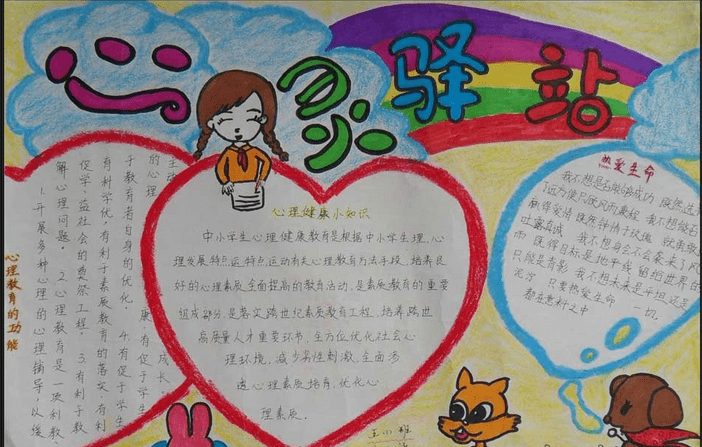 心灵驿站
心理教育的功能
1.开展多种心理的心理辅导,以缓
解心理问题。 2.心理教育是一项利教
促学,益社会的奠祭工程。3.有利于教
有利学优,有利于素质教育的落实,有利
于教育者自身的优化。 4.有促于学生
的心理 康,有促于学生
主动 成长。
心理健康小知识
中小学生心理健康教育是根据中小学生理、心
理发展特点,运动有关心理教育方法手段,培养良
好的心理素质,全面提高的教育活动,是素质教育的重要
组成部分,是落实跨世纪素质教育工程,培养跨世
高质量人才重要环节,全方位优化社会心
理环境,减少恶性刺激,全面渗
透心理素质培育,优化心
理素质。
热爱生命
我不想是否能够成功 既然选择
了远方便只顾风雨兼程 我不想能否
赢得爱情 既然钟情于玫瑰 就勇敢
吐露真诚 我不想身会不会袭来了风
雨 既得目标是地平线 留给世界的
只能是背影 我不想未来是平坦还是
泥泞 只要热爱生命 一切,
都在意料之中